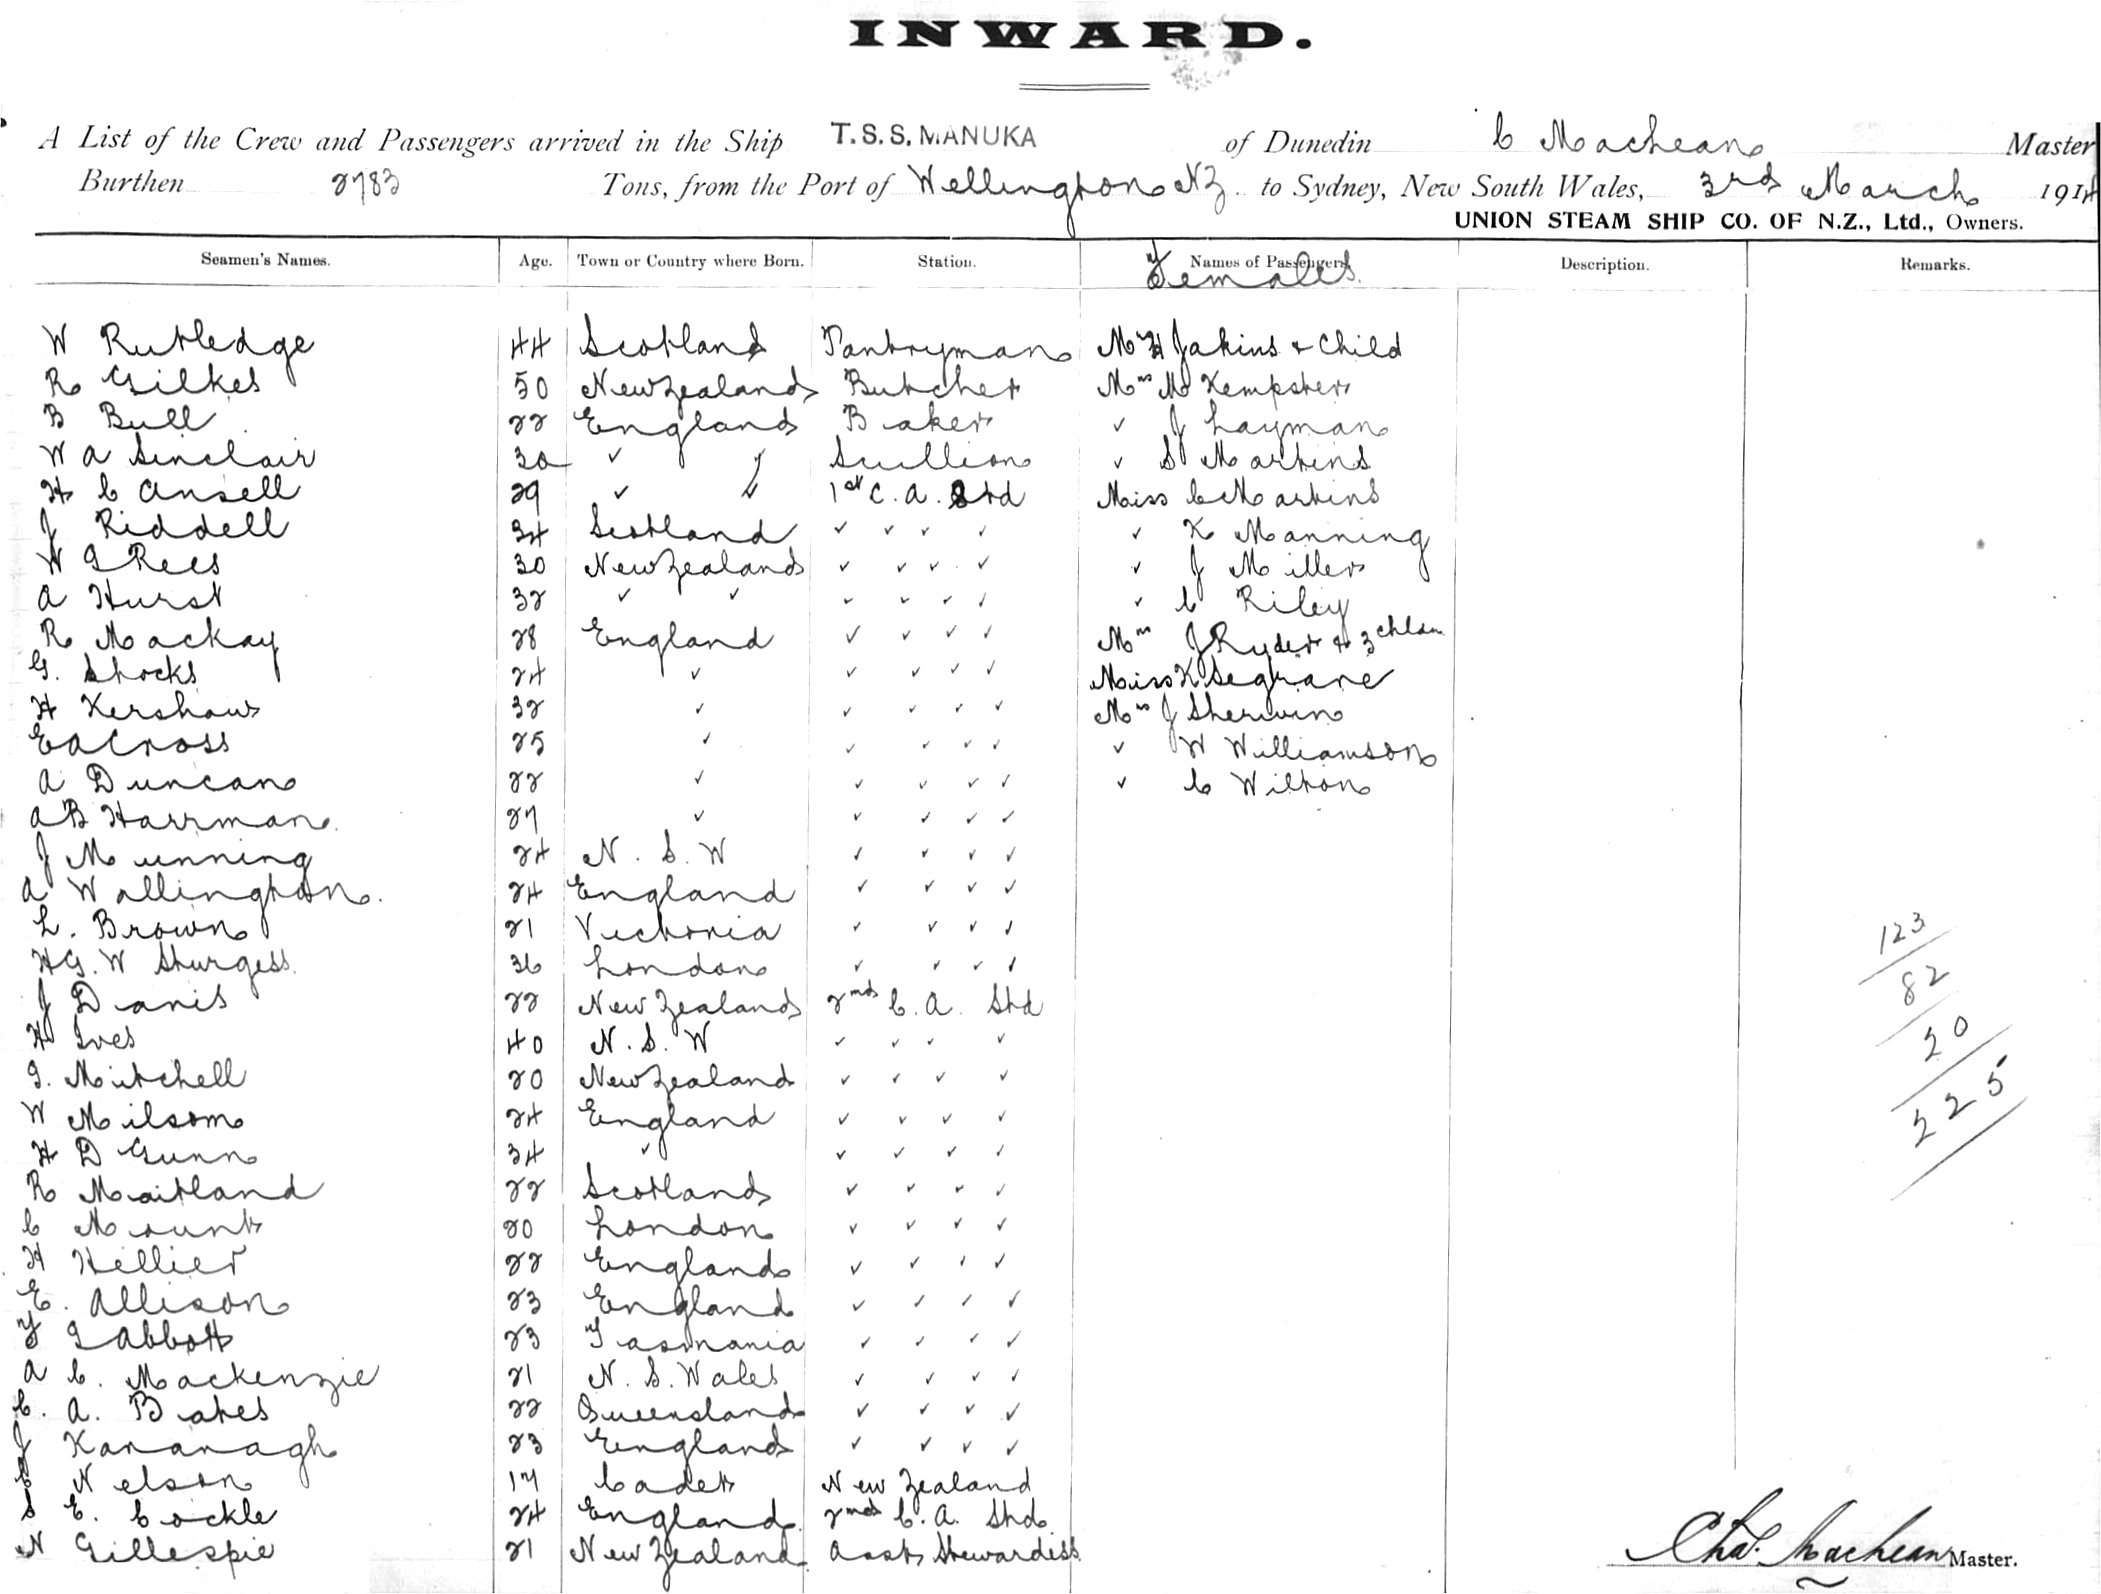 INWARD.
A List of the Crew and Passengers arrived in the Ship T.S.S. MANUKA of Dunedin C MacLean Master
Burthen 2783 Tons, from the Port of Wellington NZ to Sydney, New South Wales, 3rd March 1914
UNION STEAM SHIP CO. OF N.Z., Ltd., Owners.
Seamen's Names. Age. Town or Country where Born. Station. Names of Passengers. Description. Remarks.
Females.
W Rutledge 44 Scotland Pantryman Mrs H Jakins & Child
R Gilkes 50 New Zealand Butcher Mrs M Kempster
B Bull 22 England Baker ✓ J Layman
W A Sinclair 30 ✓ ✓ Scullion ✓ S Martins
H C Ansell 29 ✓ ✓ 1st C. A. Std Miss C Martins
J Riddell 34 Scotland ✓ ✓ ✓ ✓ ✓ K Manning
W G Rees 30 New Zealand ✓ ✓ ✓ ✓ ✓ J Miller
A Hurst 32 ✓ ✓ ✓ ✓ ✓ ✓ ✓ C Riley
R Mackay 28 England ✓ ✓ ✓ ✓ Mrs J Ryder & 3 chldn
G. Shocks 24 ✓ ✓ ✓ ✓ ✓ Miss K Segrave
H Kershaw 32 ✓ ✓ ✓ ✓ ✓ Mrs J Sherwin
E A Cross 25 ✓ ✓ ✓ ✓ ✓ ✓ W Williamson
A Duncan 22 ✓ ✓ ✓ ✓ ✓ ✓ C Wilton
A B Harrman 27 ✓ ✓ ✓ ✓ ✓
J Munning 24 N. S. W ✓ ✓ ✓ ✓
A Wallington. 24 England ✓ ✓ ✓ ✓
L. Brown 21 Victoria ✓ ✓ ✓ ✓ 123
H G. W Sturgess 36 London ✓ ✓ ✓ ✓ 82
J Davis 22 New Zealand 2nd C. A. Std
H Ives 40 N. S. W ✓ ✓ ✓ ✓ 20
G. Mitchell 20 New Zealand ✓ ✓ ✓ ✓
W Milsom 24 England ✓ ✓ ✓ ✓ 225
H D Gunn 34 ✓ ✓ ✓ ✓ ✓
R Maitland 22 Scotland ✓ ✓ ✓ ✓
C Mount 20 London ✓ ✓ ✓ ✓
H Hellier 22 England ✓ ✓ ✓ ✓
E. Allison 23 England ✓ ✓ ✓ ✓
F G Abbott 23 Tasmania ✓ ✓ ✓ ✓
A C. Mackenzie 21 N. S. Wales ✓ ✓ ✓ ✓
C. A. Bates 22 Queensland ✓ ✓ ✓ ✓
J Kavanagh 23 England ✓ ✓ ✓ ✓
C Nelson 17 Cadet New Zealand
S E. Cockle 24 England 2nd C. A. Std.
N Gillespie 21 New Zealand Asst Stewardess
Chas. MacLean Master.